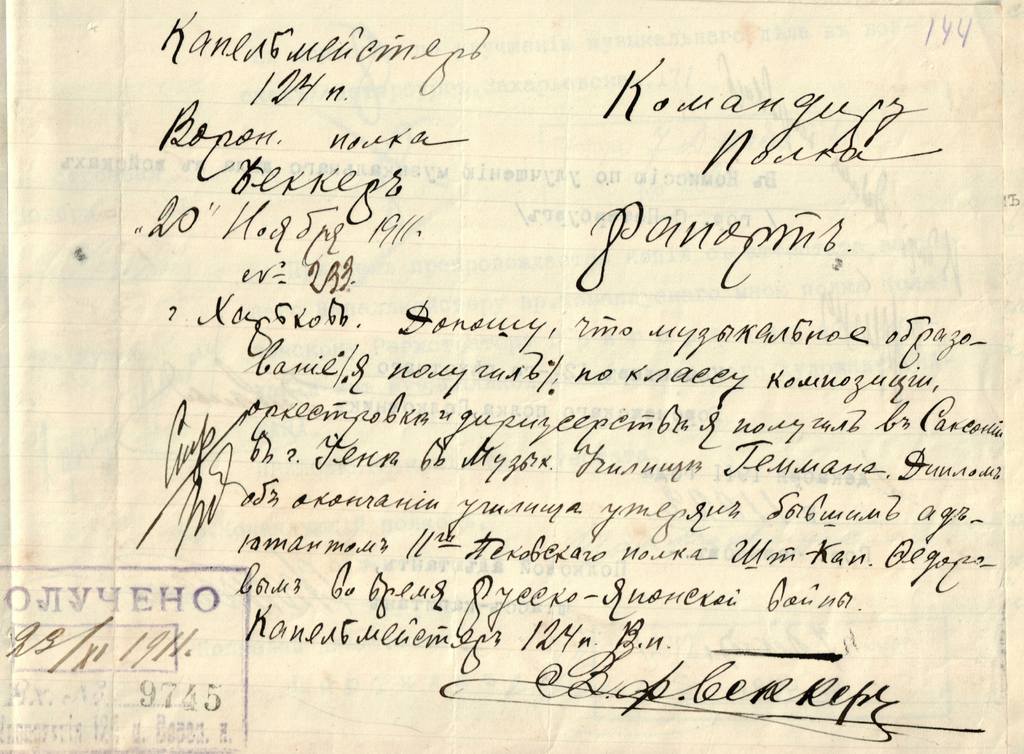 144
Капельмейстеръ
124 п.
Ворон. полка
Беккеръ
"20" Ноября 1911.
№ 233.
г Харьковъ.
Командиру
Полка
Рапортъ.
Доношу, что музыкальное образо-
ваніе /:я получилъ:/, по классу композиціи,
оркестровки и дирижерства я получилъ въ Саксоніи
въ г. въ Музык. Училищѣ Геммана. Дипломъ
объ окончаніи училища утерянъ бывшимъ адъ-
ютантомъ 11го Псковскаго полка Шт Кап. Ѳедоро-
вымъ во время Русско-Японской войны.
Капельмейстеръ 124 п. В.п.
В. Ф. Беккеръ
ОЛУЧЕНО
23/XI 1911.
9745